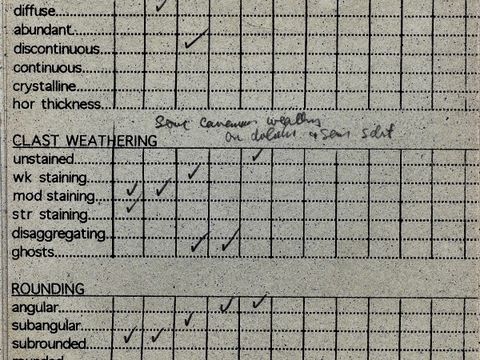 diffuse
abundant
discontinuous
continuous
crystalline
hor thickness
Some cavernous weathering
on
CLAST WEATHERING
unstained
wk staining
mod staining
str staining
disaggregating
ghosts
ROUNDING
angular
subangular
subrounded
rounded